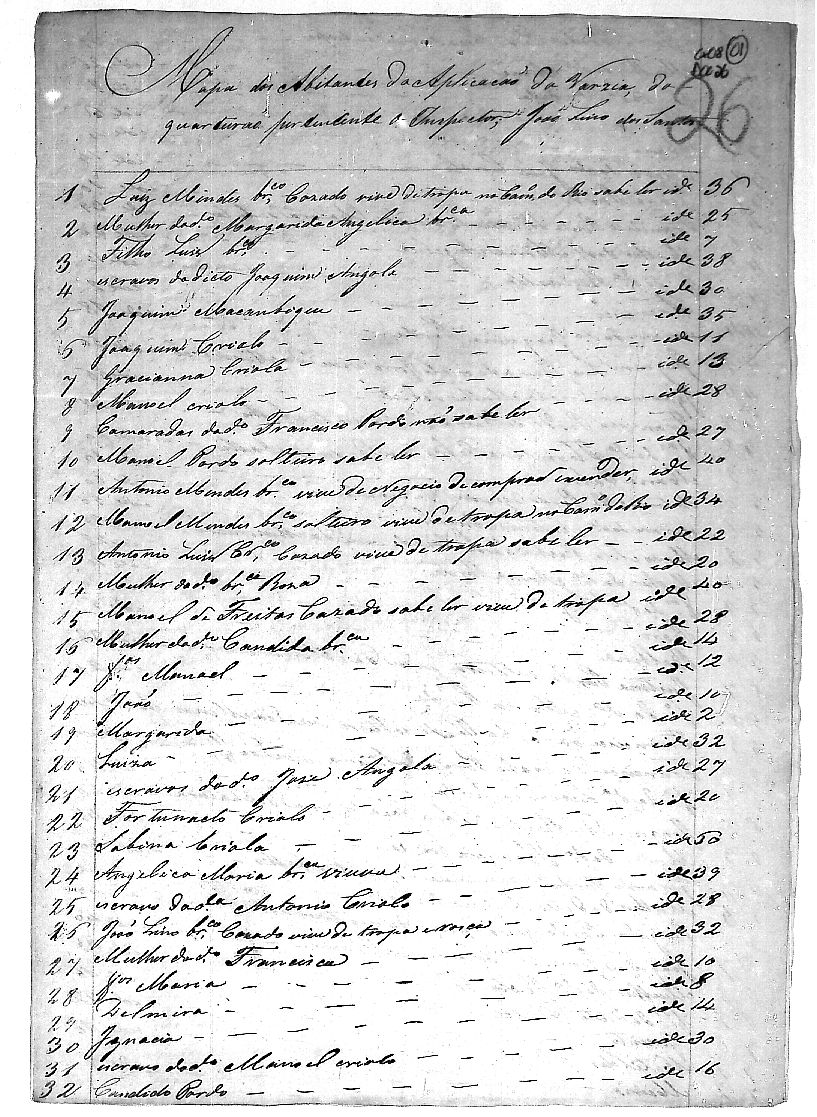 cx08 01
Dc 26
26
Mapa dos Abitantes da Aplicacaõ da Varzia, do
quarteiraõ pertendente o Inspector, Joaõ Lino dos Santos
1 Luiz Mendes br.co Cazado vive de tropa no Cam.o do Rio sabe ler ide 36
2 Mulher do d.o Margarida Angelica br.ca ide 25
3 Filho Luis br.co ide 7
4 escravos do dicto Joaquim Angola ide 38
5 Joaquim Macanbique ide 30
6 Joaquim Criolo ide 35
7 Gracianna Criola ide 11
8 Manoel criolo ide 13
9 Camaradas do d.o Francisco Pardo naõ sabe ler ide 28
10 Manoel Pardo solteiro sabe ler ide 27
11 Antonio Mendes br.co vive de Negocio de comprar e vender, ide 40
12 Manoel Mendes br.co solteiro vive de tropa no Cam.o do Rio ide 34
13 Antonio Luis Cazado vive de tropa sabe ler ide 22
14 Mulher do d.o br.ca Roza ide 20
15 Manoel de Freitas Cazado sabe ler vive de tropa ide 40
16 Mulher do d.o Candida br.ca ide 28
17 f.os Manoel ide 14
18 Joaõ ide 12
19 Margarida ide 10
20 Luiza ide 2
21 escravos do d.o Joze Angola ide 32
22 Fortunacto Criolo ide 27
23 Sabina Criola ide 20
24 Angelica Maria br.ca viuva ide 50
25 escravo da d.a Antonio Criolo ide 39
25 Joaõ Lino br.co Cazado vive de tropa e roça ide 28
27 Mulher do d.o Francisca ide 32
28 f.os Maria ide 10
29 Delmira ide 8
30 Ignacia ide 14
31 escravo do d.o Manoel criolo ide 30
32 Candido Pardo ide 16